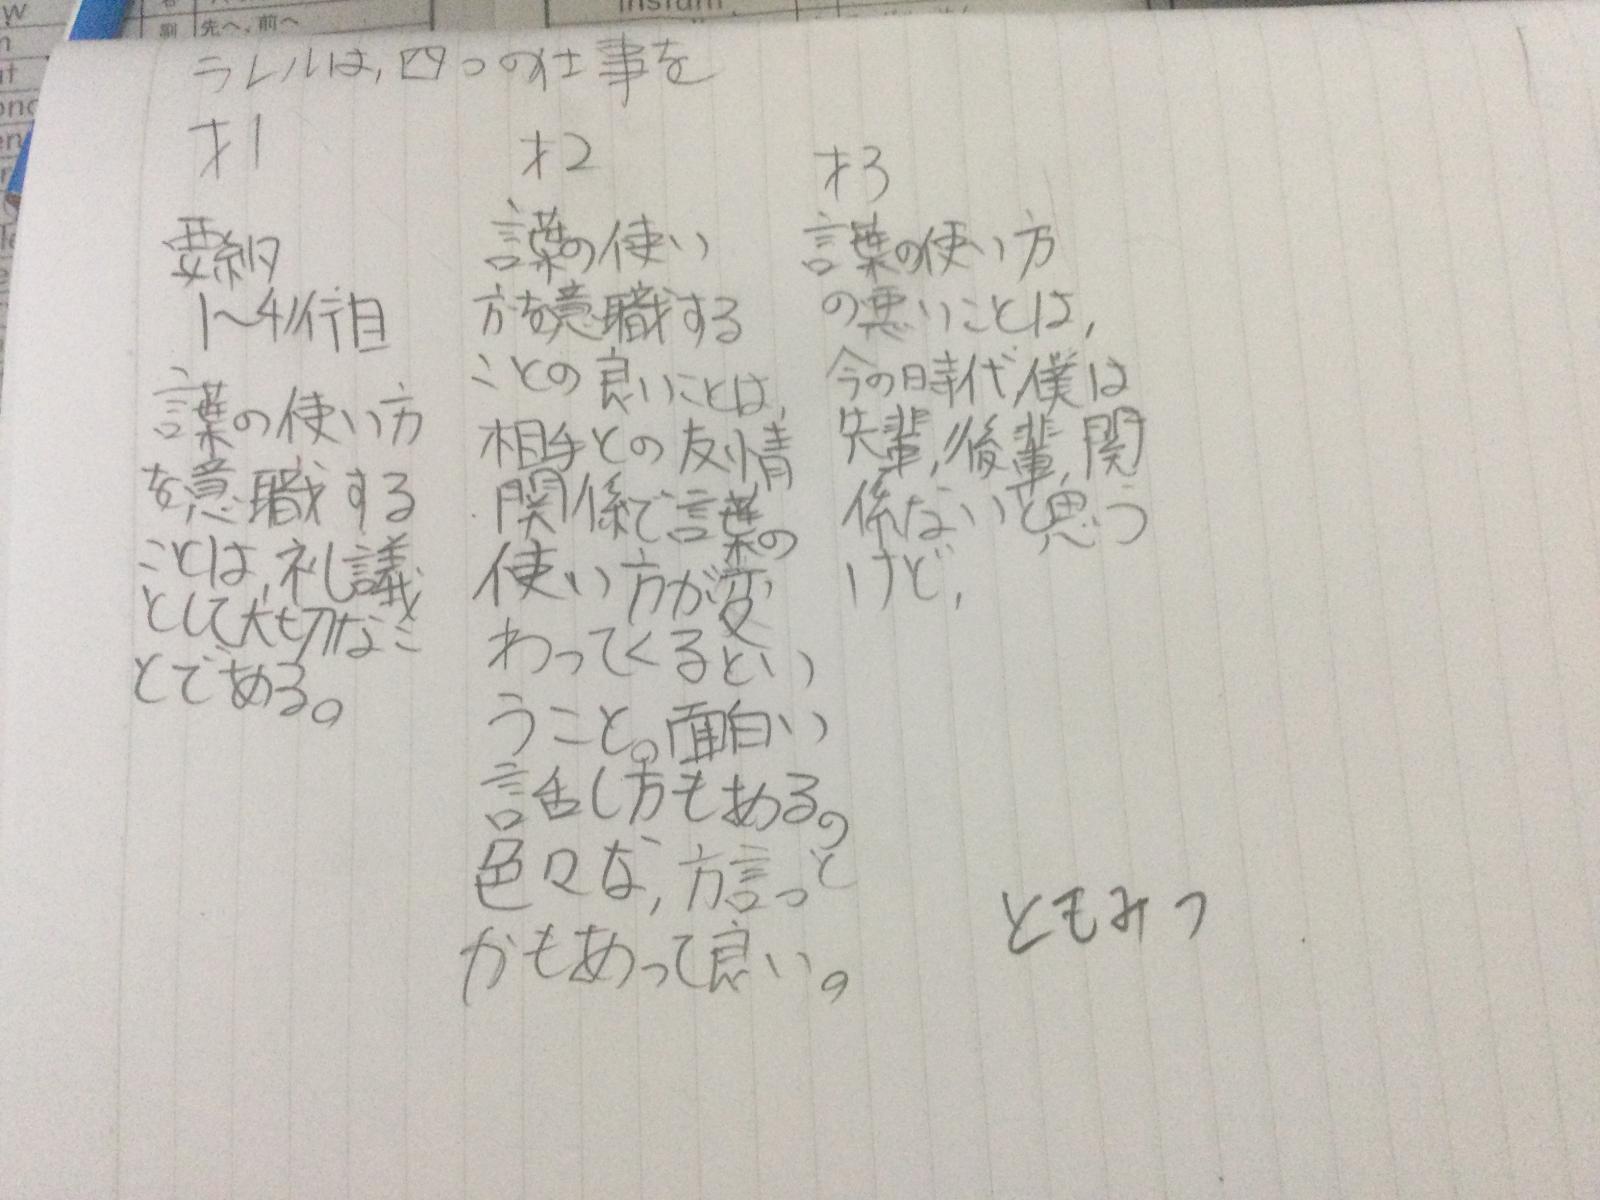 先へ,前へ
ラレルは,四つの仕事を
才1
要約
1〜4行目
言葉の使い方
を意職する
ことは,礼議
として大切なこ
とである。
才2
言葉の使い
方を意職する
ことの良いことは,
相手との友情
関係で言葉の
使い方が変
わってくるとい
うこと。面白い
話し方もある。
色々な,方言っと
かもあって良い。
才3
言葉の使い方
の悪いことは,
今の時代,僕は
先輩,後輩,関
係ないと思う
けど,
ともみつ